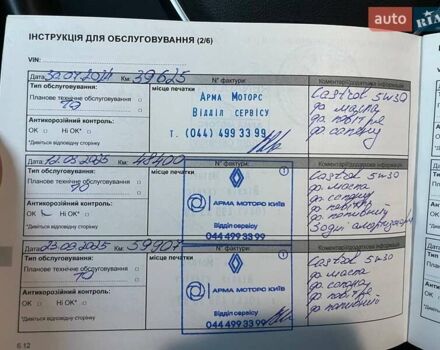 auto RIA
ІНСТРУКЦІЯ ДЛЯ ОБСЛУГОВУВАННЯ (2/6)
VIN:
Дата: 30.07.2024 Км: 39625 N° фактури: Коментарі/додаткова інформація
Тип обслуговування: місце печатки
Планове технічне обслуговування □
ТО
Антикорозійний контроль:
OK □ Ні OK* □
*Дивіться відповідну сторінку
АРМА МОТОРС
ВІДДІЛ СЕРВІСУ
т. (044) 499 33 99
Castrol 5w30
ф. масла
ф. повітря
ф. салону
Дата: 12.03.2025 Км: 48400 N° фактури: Коментарі/додаткова інформація
Тип обслуговування: місце печатки
Планове технічне обслуговування □
ТО
Антикорозійний контроль:
OK □ Ні OK* □
*Дивіться відповідну сторінку
АРМА МОТОРС КИЇВ
Відділ сервісу
044 499 33 99
Castrol 5w30
ф. масла
ф. салону
ф. повітря
ф. паливний
Задні
Дата: 23.09.2025 Км: 59407 N° фактури: Коментарі/додаткова інформація
Тип обслуговування: місце печатки
Планове технічне обслуговування □
ТО
Антикорозійний контроль:
OK □ Ні OK* □
*Дивіться відповідну сторінку
АРМА МОТОРС КИЇВ
Відділ сервісу
044 499 33 99
Castrol 5w30
ф. масла
ф. салону
ф. повітря
ф. паливний
6.12